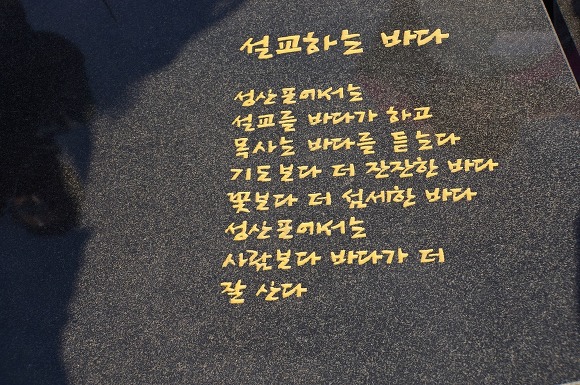 설교하는 바다
성산포에서는
설교를 바다가 하고
목사는 바다를 듣는다
기도보다 더 잔잔한 바다
꽃보다 더 섬세한 바다
성산포에서는
사람보다 바다가 더
잘 산다